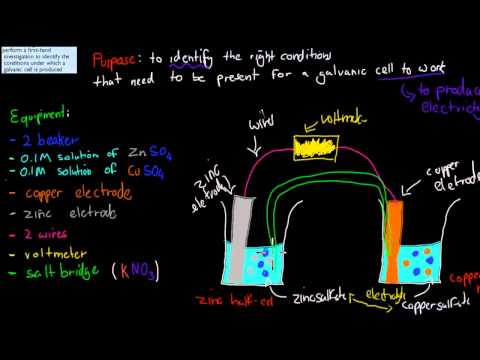 perform a first-hand
investigation to identify the
conditions under which a
galvanic cell is produced
Purpose: to identify the right conditions
that need to be present for a galvanic cell to work
↳ to produce
electricity
Equipment:
- 2 beaker
- 0.1M solution of Zn SO4
- 0.1M solution of Cu SO4
- copper electrode
- zinc eletrode
- 2 wires
- voltmeter
- salt bridge (KNO3)
wires
zinc
eletrode
copper
eletrode
zinc half-cell
zinc sulfate
electrolyte
copper sulfate
copper